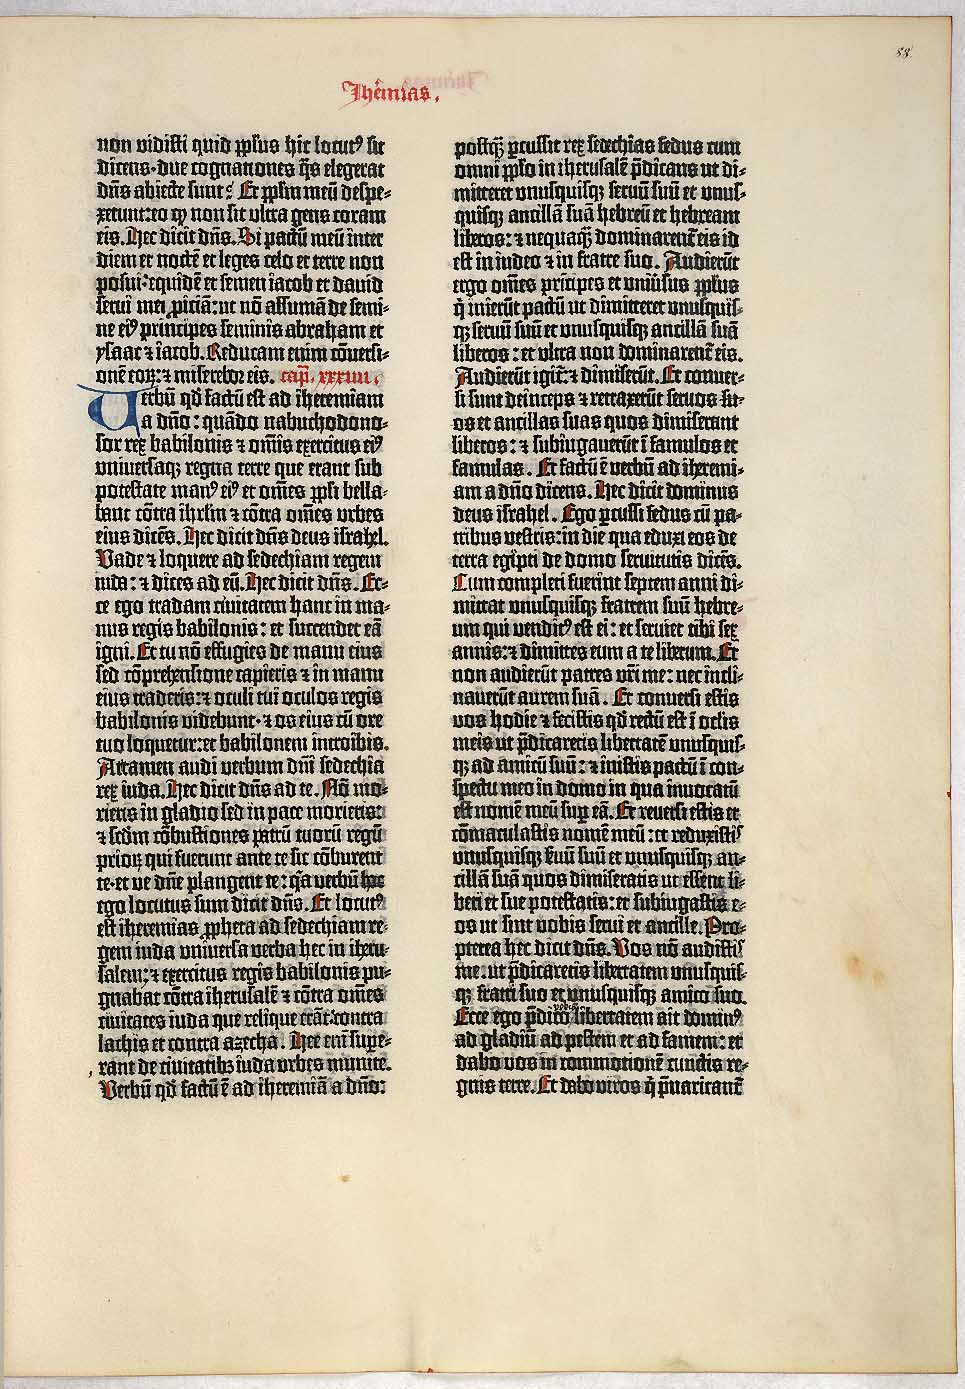 88
Jhēmias.
non vidisti quid ꝓp̄lus hic locutꝰ sit
dicens·due cognationes q̄s elegerat
dn̄s abiecte sunt⸵ Et ꝓp̄lm meū despe-
xerunt:eo ꝙ non sit vltra gens coram
eis. Hec dicit dn̄s. Si pactū meū inter
diem et noctē et leges celo et terre non
posui·equidē et semen iacob et dauid
serui mei ꝓiciā: ut nō assumā de semi-
ne eiꝰ principes seminis abraham et
ysaac ⁊ iacob. Reducam enim cōuersi-
onē eoꝝ:⁊ miserebor eis. cap̄. xxxiiii.
Verbū qd̄ factū est ad iheremiam
a dn̄o : quādo nabuchodono-
sor rex babilonis ⁊ om̄is exercitus eiꝰ
vniuersaqꝫ regna terre que erant sub
potestate manꝰ eiꝰ et om̄es ꝓp̄li bella-
bant cōtra ihrlm̄ ⁊ cōtra om̄es vrbes
eius dicēs. Hec dicit dn̄s deus israhel.
Vade ⁊ loquere ad sedechiam regem
iuda: ⁊ dices ad eū. Hec dicit dn̄s. Ec-
ce ego tradam ciuitatem hanc in ma-
nus regis babilonis: et succendet eā
igni. Et tu nō effugies de manu eius
sed cōprehensione capieris ⁊ in manu
eius traderis:⁊ oculi tui oculos regis
babilonis videbunt·⁊ os eius cū ore
tuo loquetur:et babilonem introibis.
Attamen audi verbum dn̄i sedechia
rex iuda. Hec dicit dn̄s ad te. Nō mo-
rieris in gladio sed in pace morieris:
⁊ scd̄m cōbustiones patrū tuorū regū
prioꝝ qui fuerunt ante te sic cōburent
te·et ve dn̄e plangent te: q̄a verbū hoc
ego locutus sum dicit dn̄s. Et locutꝰ
est iheremias ꝓpheta ad sedechiam re-
gem iuda vniuersa verba hec in iheru-
salem: ⁊ exercitus regis babilonis pu-
gnabat cōtra iherusalē ⁊ cōtra om̄es
ciuitates iuda que relique erāt:contra
lachis et contra azecha. Hec em̄ supe-
rant de ciuitatibꝫ iuda vrbes munite.
Verbū qd̄ factū ē ad iheremiā a dn̄o:
postqꝫ̄ ꝑcussit rex sedechias fedus cum
omni ꝓp̄lo in iherusalē p̄dicans ut di-
mitteret vnusquisqꝫ seruū suū et vnus-
quisqꝫ ancillā suā hebreū et hebream
liberos: ⁊ nequaqꝫ̄ dominarent᷑ eis id
est in iudeo ⁊ in fratre suo. Audierūt
ergo om̄es prīcipes et vniūsus ꝓp̄lus
q̄ inierūt pactū ut dimitteret vnusquis-
qꝫ seruū suū et vnusquisqꝫ ancillā suā
liberos : et vltra non dominarent᷑ eis.
Audierūt igit᷑: ⁊ dimiserūt. Et conuer-
si sunt deinceps ⁊ retraxerūt seruos su-
os et ancillas suas quos dimiserant
liberos: ⁊ subiugauerūt ī famulos et
famulas . Et factū ē verbū ad iheremi-
am a dn̄o dicens. Hec dicit dominus
deus israhel. Ego ꝑcussi fedus cū pa-
tribus vestris: in die qua eduxi eos de
terra egipti de domo seruitutis dicēs.
Cum completi fuerint septem anni di-
mittat vnusquisqꝫ fratrem suū hebre-
um qui venditꝰ est ei: et seruiet tibi sex
annis: ⁊ dimittes eum a te liberum. Et
non audierūt patres vr̄i me: nec incli-
nauerūt aurem suā . Et conuersi estis
vos hodie ⁊ fecistis qd̄ rectū est ī oclis
meis ut p̄dicaretis libertatē vnusquis-
qꝫ ad amicū suū: ⁊ inistis pactū ī con-
spectu meo in domo in qua inuocatū
est nomē meū suꝑ eā. Et reuersi estis et
cōmaculastis nomē meū : et reduxistis
vnusquisqꝫ ẜuū suū et vnusquisqꝫ an-
cillā suā quos dimiseratis ut essent li-
beri et sue potestatis: et subiugastis e-
os ut sint vobis serui et ancille. Pro-
pterea hec dicit dn̄s. Vos nō audistis
me. ut p̄dicaretis libertatem vnusquis-
qꝫ fratri suo et vnusquisqꝫ amico suo.
Ecce ego p̄dico vobis libertatem ait dominꝰ
ad gladiū ad pestem et ad famem: et
dabo vos in commotionē cunctis re-
gnis terre. Et dabo viros q̄ p̄uaricant᷑